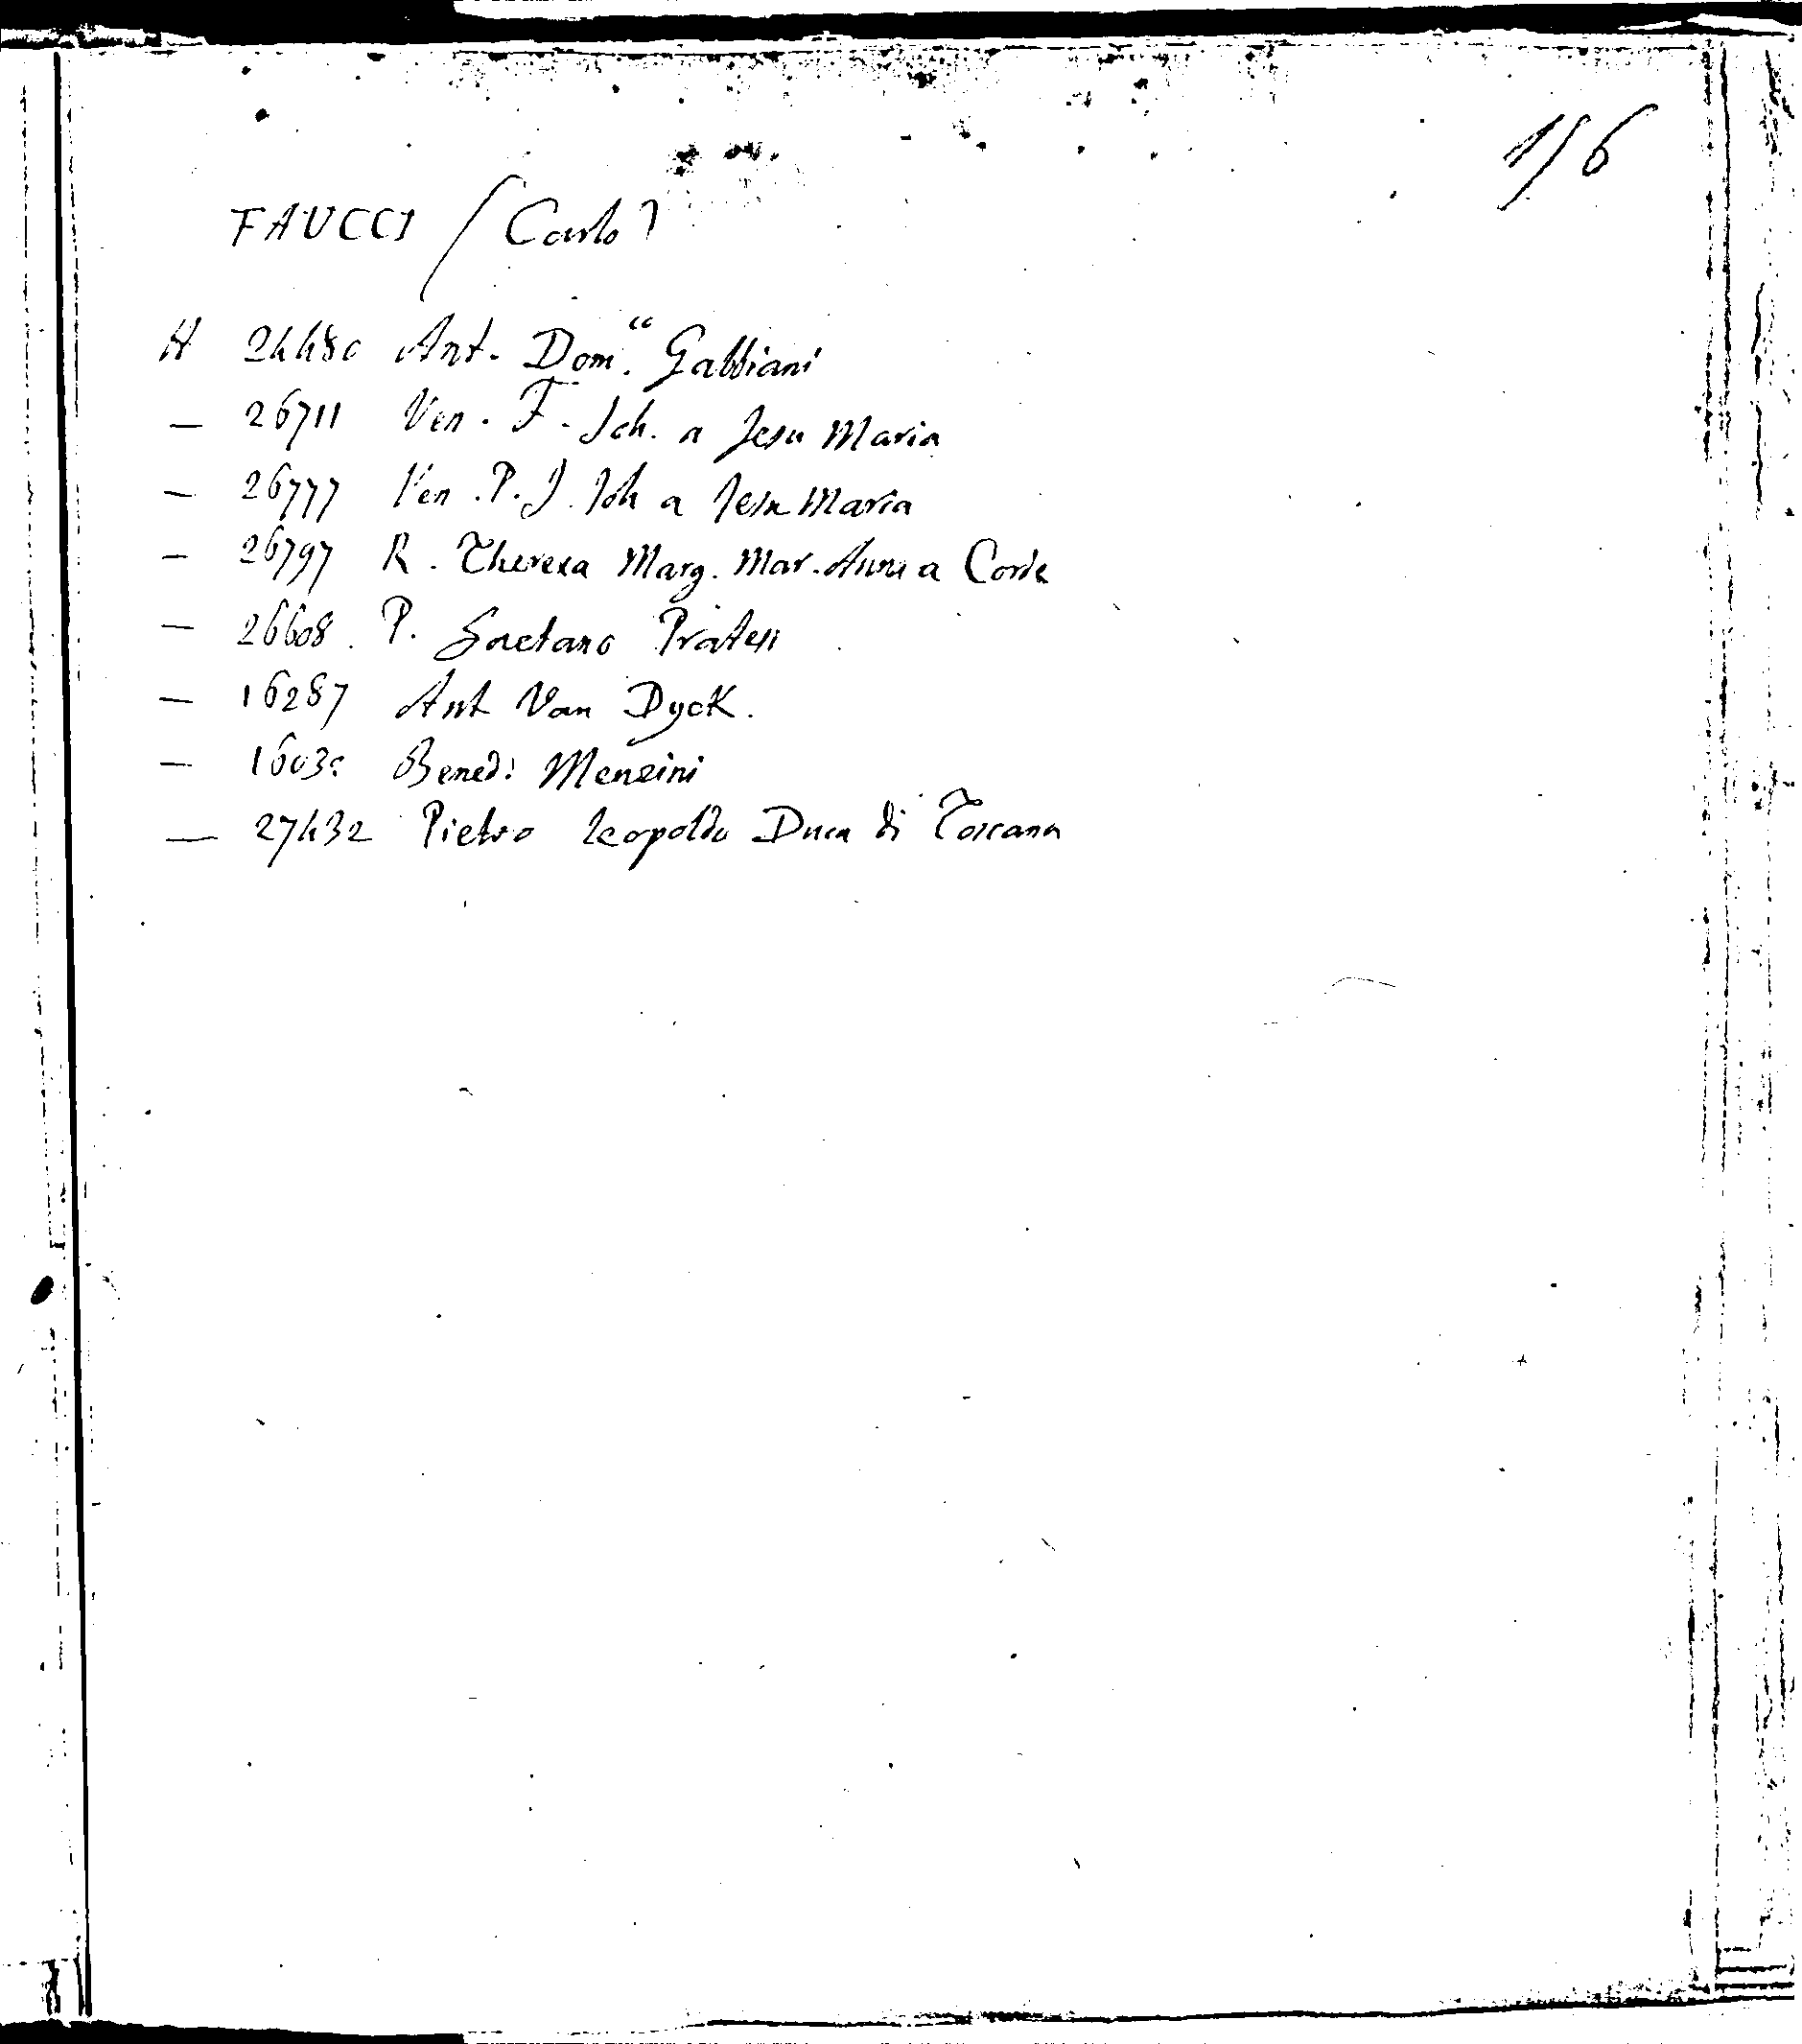 156
FAUCCI (Carlo)
H 24480 Ant. Dom." Gabbiani
— 26711 Ven. F. Joh. a Jesu Maria
— 26777 Ven. P. J. Joh a Jesu Maria
— 26797 R. Theresa Marg. Mar. Anna a Corde
— 26608. P. Gaetano Pratesi
— 16287 Ant Van Dyck.
— Bened: Menzini
— 27432 Pietro Leopoldo Duca di Toscana